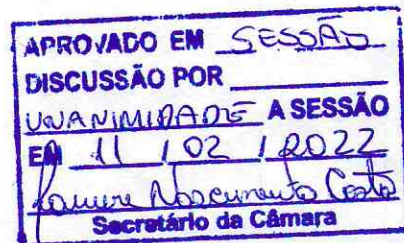 APROVADO EM SESSÃO
DISCUSSÃO POR
UNANIMIDADE A SESSÃO
EM 11 / 02 / 2022
Nascimento Costa
Secretário da Câmara